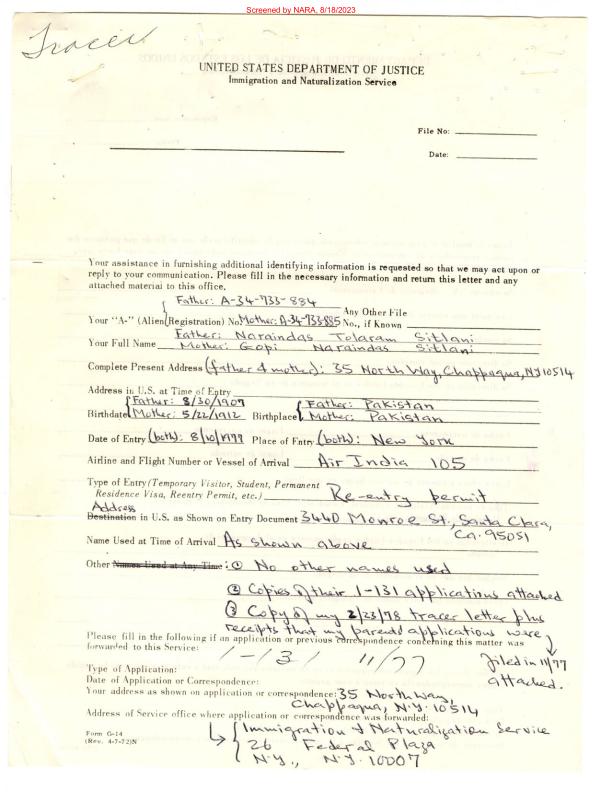 Screened by NARA, 8/18/2023
Tracer
UNITED STATES DEPARTMENT OF JUSTICE
Immigration and Naturalization Service
File No:
Date:
Your assistance in furnishing additional identifying information is requested so that we may act upon or
reply to your communication. Please fill in the necessary information and return this letter and any
attached material to this office.
Father: A-34-733-884
Your "A-" (Alien Registration) No. Mother: A-34-733-885 Any Other File No., if Known
Father: Naraindas Tolaram Sitlani
Your Full Name Mother: Gopi Naraindas Sitlani
Complete Present Address (father & mother): 35 North Way, Chappaqua, NY 10514
Address in U.S. at Time of Entry
Father: 8/30/1907 Father: Pakistan
Birthdate Mother: 5/22/1912 Birthplace Mother: Pakistan
Date of Entry (both): 8/10/1977 Place of Entry (both): New York
Airline and Flight Number or Vessel of Arrival Air India 105
Type of Entry (Temporary Visitor, Student, Permanent
Residence Visa, Reentry Permit, etc.) Re-entry permit
Address
Destination in U.S. as Shown on Entry Document 3440 Monroe St., Santa Clara,
Ca. 95051
Name Used at Time of Arrival As shown above
Other Names Used at Any Time: ① No other names used
② Copies of their I-131 applications attached
③ Copy of my 2/23/78 tracer letter plus
receipts that my parents' applications were
Please fill in the following if an application or previous correspondence concerning this matter was
forwarded to this Service: I-131 11/77 filed in 11/77
attached.
Type of Application:
Date of Application or Correspondence:
Your address as shown on application or correspondence: 35 North Way,
Chappaqua, N.Y. 10514
Address of Service office where application or correspondence was forwarded:
Immigration & Naturalization Service
26 Federal Plaza
N.Y., N.Y. 10007
Form G-14
(Rev. 4-7-72)N